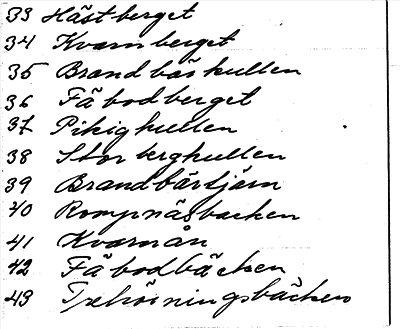 33 Hästberget
34 Kvarnberget
35 Brandbäskullen
36 Fäbodberget
37 Pikighullen
38 Storberghullen
39 Brandbärtjärn
40 Rompnäsbacken
41 Kvarnån
42 Fäbodbäcken
43